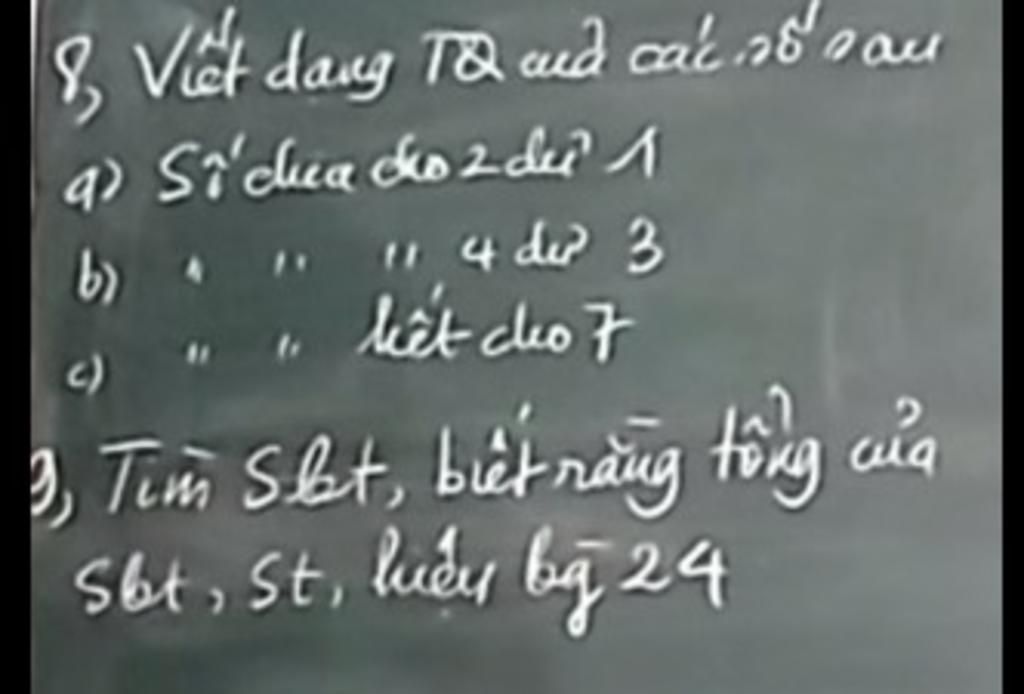 8, Viết dạng TQ của các số sau
a) Số chia cho 2 dư 1
b) " " " 4 dư 3
c) " " hết cho 7
9, Tìm Sbt, biết rằng tổng của
Sbt, St, hiệu bg 24